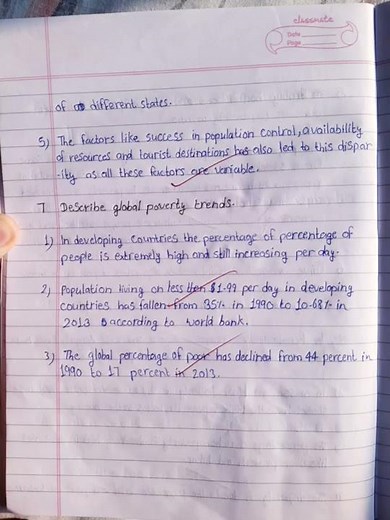 classmate
Date
Page
of different states.
5) The factors like success in population control, availability
of resources and tourist destinations has also led to this dispar
-ity as all these factors are variable.
7 Describe global poverty trends.
1) In developing countries the percentage of percentage of
people is extremely high and still increasing per day.
2) Population living on less then $1.99 per day in developing
countries has fallen from 35% in 1990 to 10.68% in
2013 according to world bank.
3) The global percentage of poor has declined from 44 percent in
1990 to 17 percent in 2013.